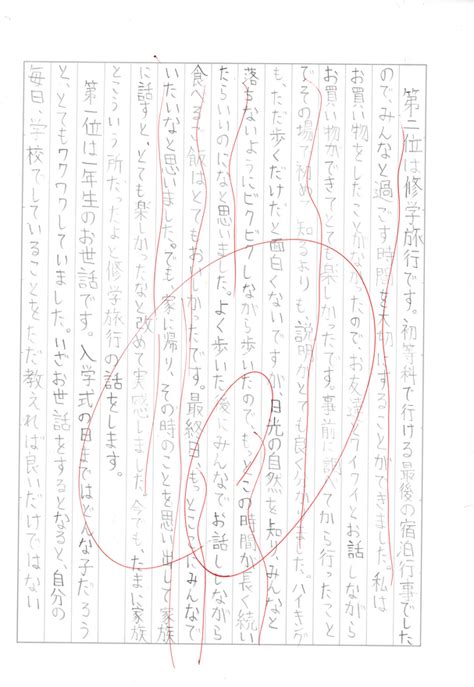 第二位は修学旅行です。初等科で行ける最後の宿泊行事でした
のでみんなと過ごす時間を大切にすることができました。私は
お買い物をしたことがなかったのでお友達とワイワイとお話しながら
お買い物ができてとても楽しかったです。事前に調べてから行ったこと
でその場で初めて知るよりも、説明がとても良く分かりました。ハイキング
も、ただ歩くだけだと面白くないですが、日光の自然を知り、みんなと
落ちないようにビクビクしながら歩いたので、もっとこの時間が長く続い
たらいいのになと思いました。よく歩いた後にみんなでお話しながら
食べるご飯はとてもおいしかったです。最終日、もっとここにみんなで
いたいなと思いました。でも家に帰り、その時のことを思い出して家族
に話すと、とても楽しかったなと改めて実感しました。今でも、たまに家族
とこういう所だったよと修学旅行の話をします。
第一位は一年生のお世話です。入学式の日まではどんな子だろう
と、とてもワクワクしていました。いざお世話をするとなると、自分の
毎日、学校でしていることをただ教えれば良いだけではない